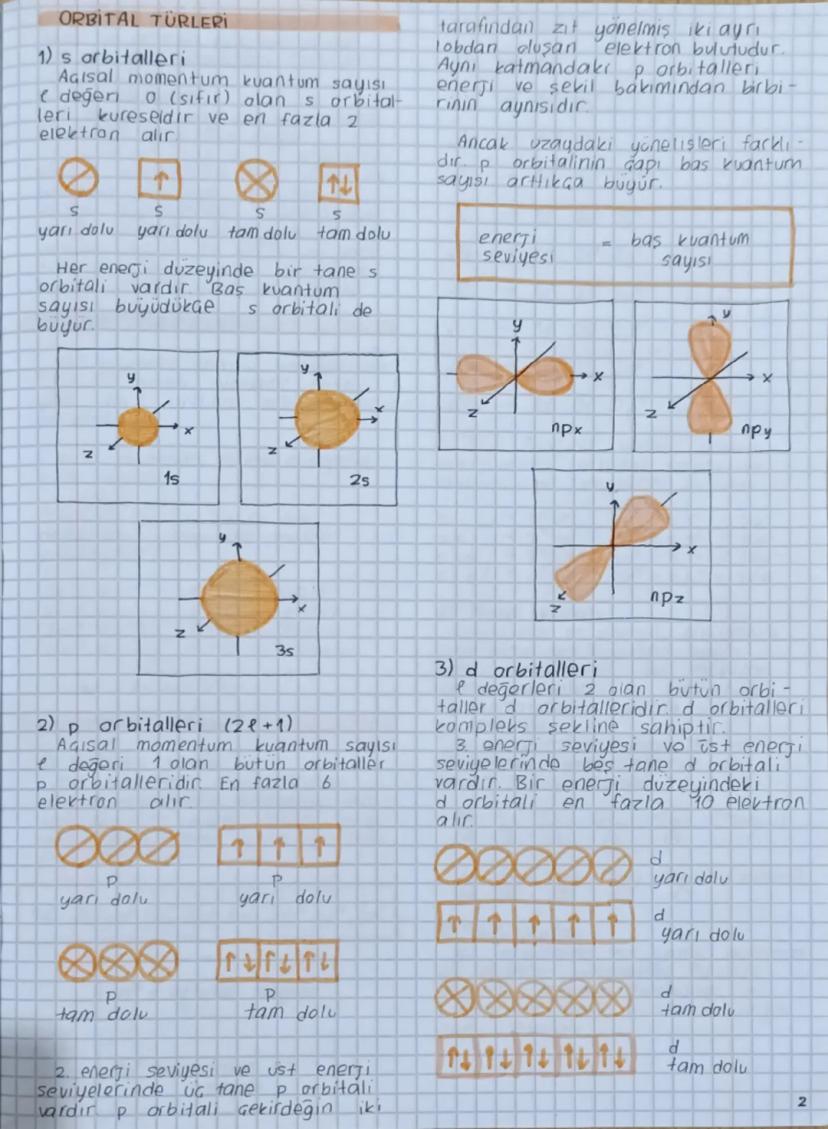 ORBİTAL TÜRLERİ
1) s orbitalleri
Açısal momentum kuantum sayısı
ℓ değeri 0 (sıfır) olan s orbital-
leri küreseldir ve en fazla 2
elektron alır.
s s s s
yarı dolu yarı dolu tam dolu tam dolu
Her enerji düzeyinde bir tane s
orbitali vardır. Baş kuantum
sayısı büyüdükçe s orbitali de
büyür.
y
x
z
1s
y
x
z
2s
y
x
z
3s
2) p orbitalleri (2ℓ+1)
Açısal momentum kuantum sayısı
ℓ değeri 1 olan bütün orbitaller
p orbitalleridir. En fazla 6
elektron alır.
p p
yarı dolu yarı dolu
p p
tam dolu tam dolu
2. enerji seviyesi ve üst enerji
seviyelerinde üç tane p orbitali
vardır. p orbitali çekirdeğin iki
tarafından zıt yönelmiş iki ayrı
lobdan oluşan elektron bulutudur.
Aynı katmandaki p orbitalleri
enerji ve şekil bakımından birbi-
rinin aynısıdır.
Ancak uzaydaki yönelişleri farklı-
dır. p orbitalinin çapı baş kuantum
sayısı arttıkça büyür.
enerji = baş kuantum
seviyesi sayısı
y
x
z
npx
y
x
z
npy
y
x
z
npz
3) d orbitalleri
ℓ değerleri 2 olan bütün orbi-
taller d orbitalleridir. d orbitalleri
kompleks şekline sahiptir.
3. enerji seviyesi ve üst enerji
seviyelerinde beş tane d orbitali
vardır. Bir enerji düzeyindeki
d orbitali en fazla 10 elektron
alır.
d
yarı dolu
d
yarı dolu
d
tam dolu
d
tam dolu
2